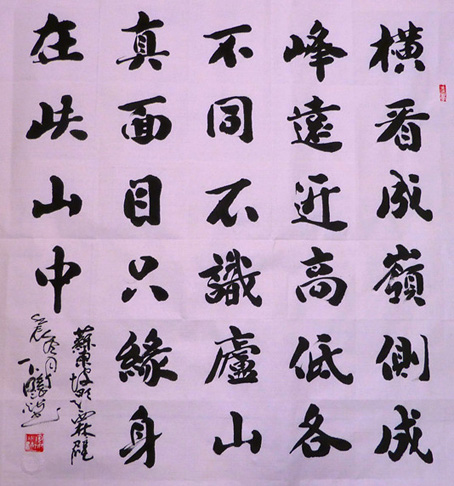 橫看成嶺側成
峰遠近高低各
不同不識廬山
真面目只緣身
在此山中
蘇東坡